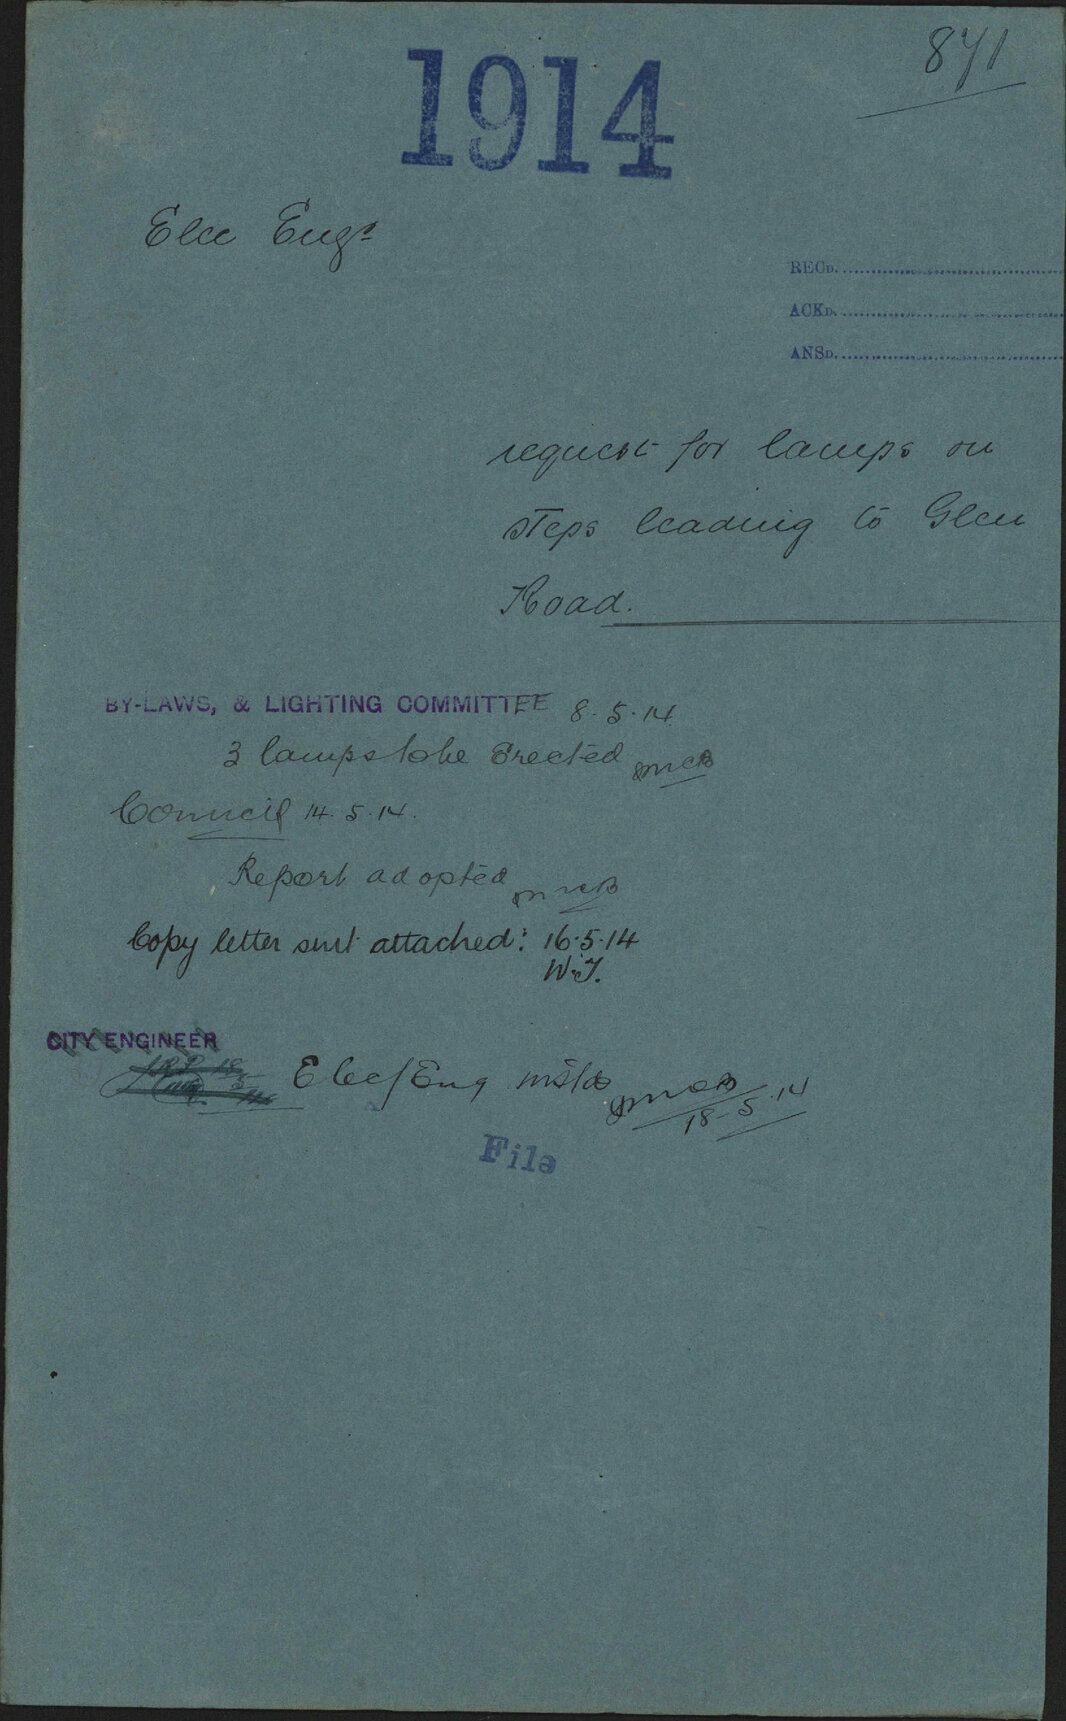 1914
871
Elec Engr
RECD.
ACKD.
ANSD.
request for lamps on
steps leading to Glen
Road.
BY-LAWS, & LIGHTING COMMITTEE 8.5.14
3 lamps to be Erected
Council 14.5.14.
Report adopted
Copy letter sent attached: 16.5.14
W.J.
CITY ENGINEER
Elec/Eng instd
18-5.14
File